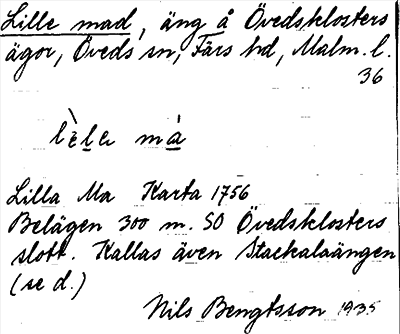 Lille mad, äng å Övedsklosters
ägor, Öveds sn, Färs hd, Malm. l.
36
lèle mà
Lilla Ma Karta 1756
Belägen 300 m. SO Övedsklosters
slott. Kallas även Stackalaängen
(se d.)
Nils Bengtsson 1935